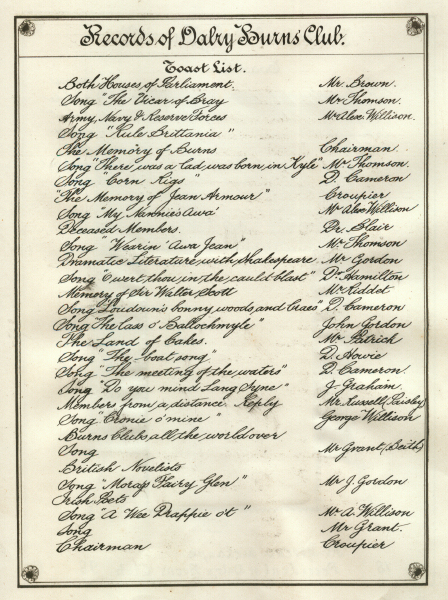 Records of Dalry Burns Club.
Toast List.
Both Houses of Parliament. Mr Brown.
Song "The Vicar of Bray Mr Thomson.
Army, Navy & Reserve Forces Mr Alex. Willison.
Song "Rule Brittania"
The Memory of Burns Chairman.
Song "There was a lad was born in Kyle" Mr Thomson.
Song "Corn Rigs" D. Cameron
"The Memory of Jean Armour" Croupier
Song "My Nannie's Awa' Mr Alex Willison
Deceased Members. Dr. Blair
Song "Wearin' Awa Jean" Mr Thomson
Dramatic Literature, with Shakespeare Mr Gordon
Song "O wert thou in the cauld blast" Dr Hamilton
Memory of Sir Walter Scott Mr Riddet
Song Loudoun's bonny woods and braes" D. Cameron
Song "The lass o' Ballochmyle" John Gordon
The Land of Cakes. Mr Patrick
Song "The boat song" D. Howie
Song "The meeting of the waters" D. Cameron.
Song "Do you mind Lang Syne" J. Graham.
Members from a distance Reply Mr Russell (Paisley)
Song "Cronie o' mine" George Willison
Burns Clubs all the world over
Song Mr Grant (Beith)
British Novelists
Song "Morag's Fairy Glen" Mr J. Gordon
Irish Poets
Song "A Wee Drappie o't" Mr A. Willison
Song Mr Grant.
Chairman Croupier